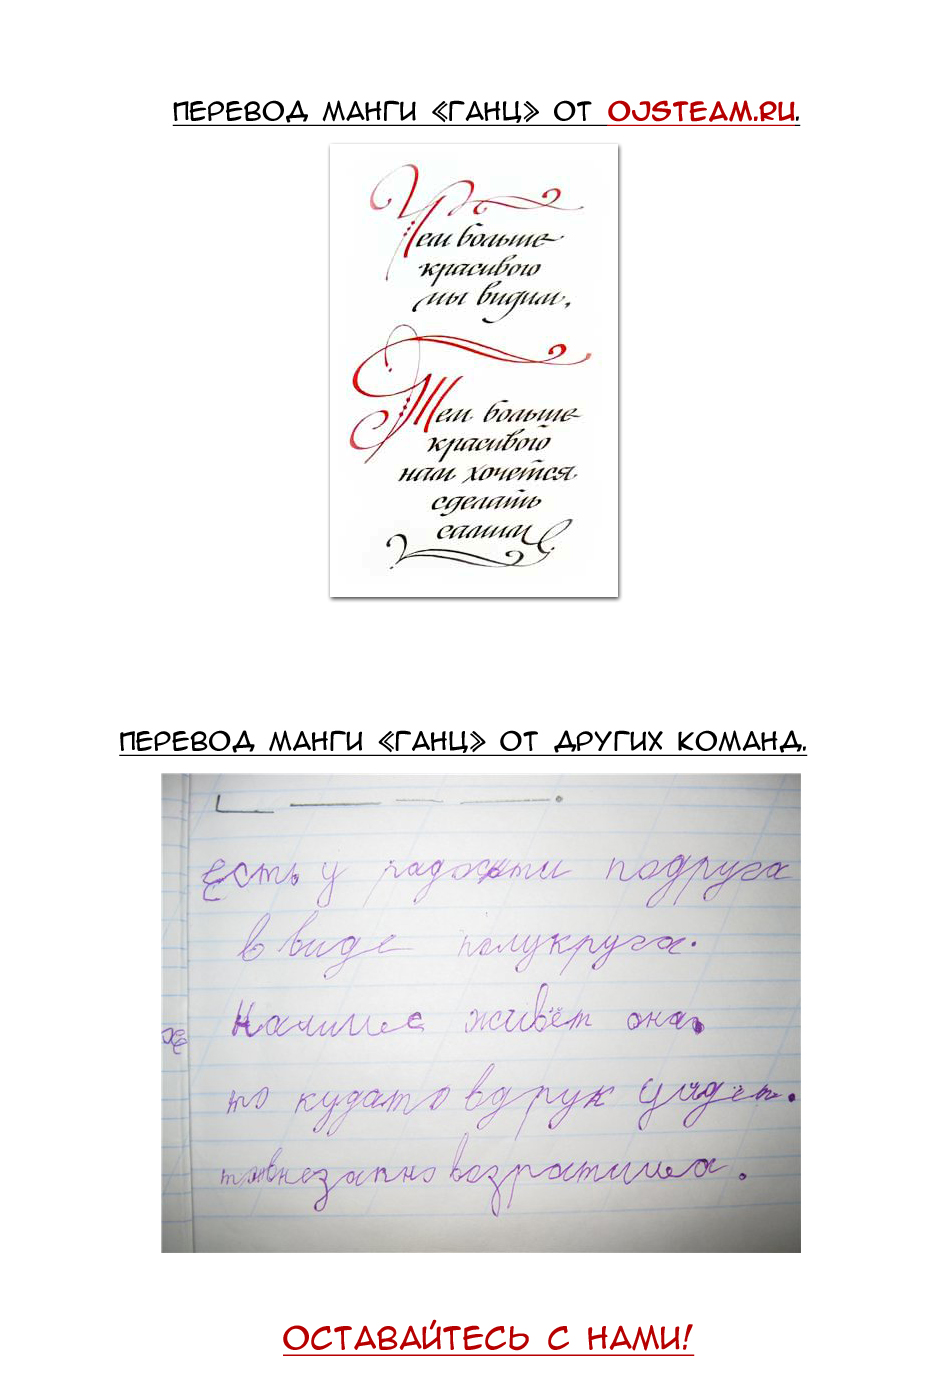 ПЕРЕВОД МАНГИ «ГАНЦ» ОТ OJSTEAM.RU.
Чем больше
красивого
мы видим,
Тем больше
красивого
нам хочется
сделать
самим
ПЕРЕВОД МАНГИ «ГАНЦ» ОТ ДРУГИХ КОМАНД.
Есть у радости подруга
в виде полукруга.
живёт она
то кудато вдрук уйдёт.
ОСТАВАЙТЕСЬ С НАМИ!